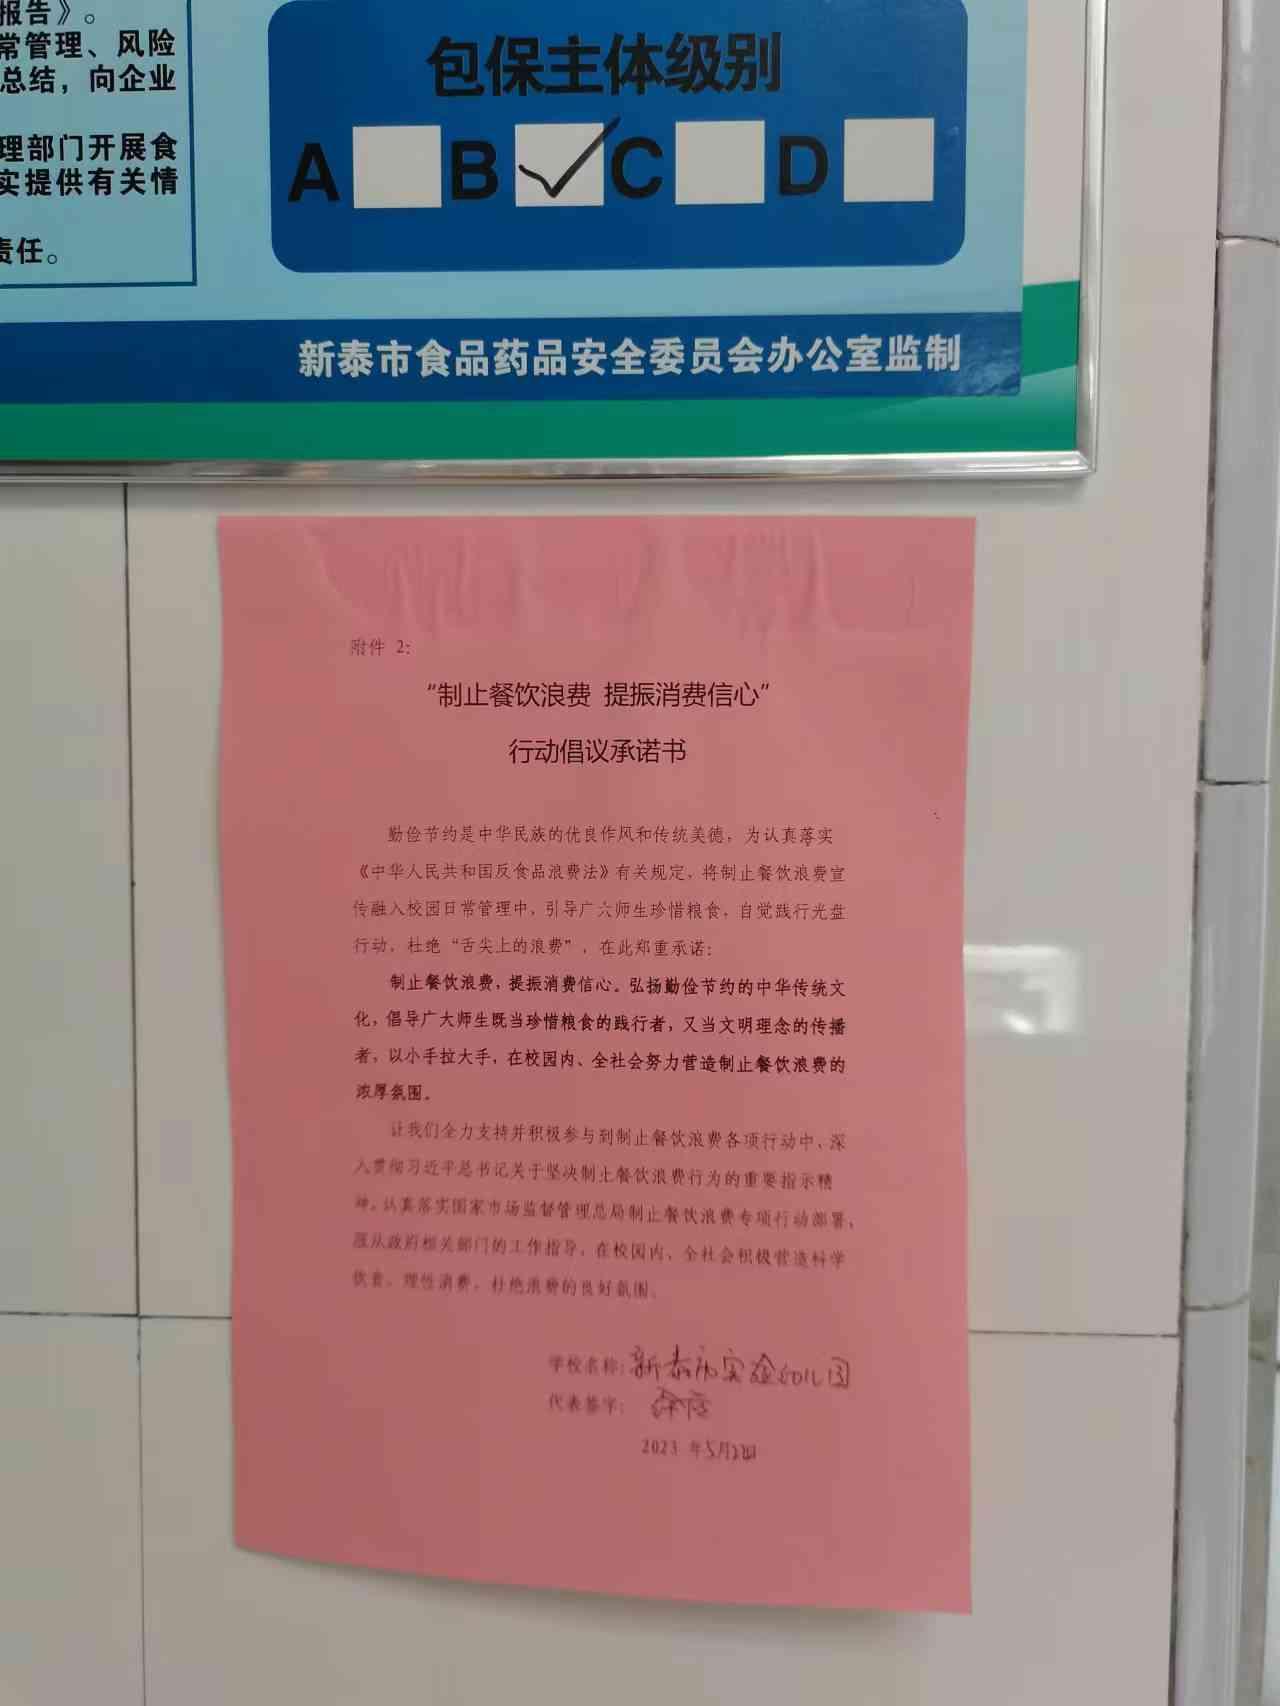 报告》。
常管理、风险
总结，向企业
理部门开展食
实提供有关情
责任。
包保主体级别
A B ✓ C D
新泰市食品药品安全委员会办公室监制
附件 2：
“制止餐饮浪费 提振消费信心”
行动倡议承诺书
勤俭节约是中华民族的优良作风和传统美德，为认真落实
《中华人民共和国反食品浪费法》有关规定，将制止餐饮浪费宣
传融入校园日常管理中，引导广大师生珍惜粮食，自觉践行光盘
行动，杜绝“舌尖上的浪费”，在此郑重承诺：
制止餐饮浪费，提振消费信心。弘扬勤俭节约的中华传统文
化，倡导广大师生既当珍惜粮食的践行者，又当文明理念的传播
者，以小手拉大手，在校园内、全社会努力营造制止餐饮浪费的
浓厚氛围。
让我们全力支持并积极参与到制止餐饮浪费各项行动中、深
入贯彻习近平总书记关于坚决制止餐饮浪费行为的重要指示精
神。认真落实国家市场监督管理总局制止餐饮浪费专项行动部署，
服从政府相关部门的工作指导，在校园内、全社会积极营造科学
饮食、理性消费、杜绝浪费的良好氛围。
学校名称：新泰市实验幼儿园
代表签字：
2023 年5月